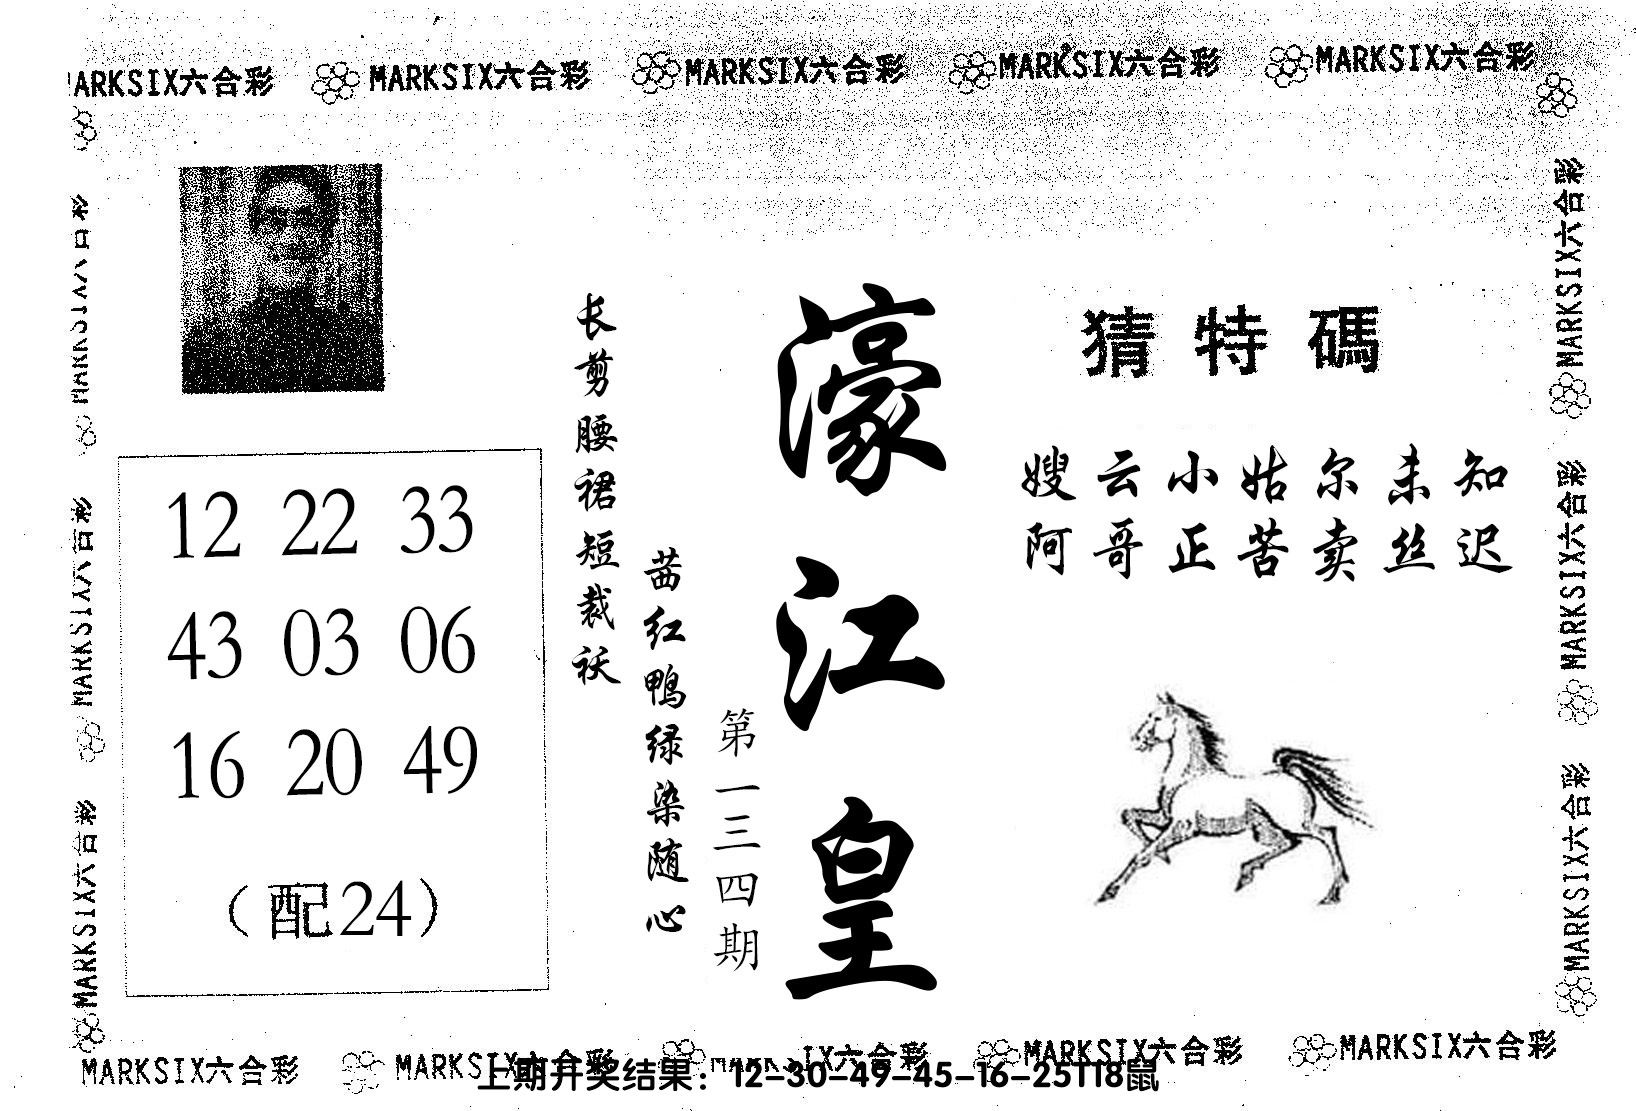 MARKSIX六合彩 MARKSIX六合彩 MARKSIX六合彩 MARKSIX六合彩 MARKSIX六合彩
MARKSIX六合彩
MARKSIX六合彩
MARKSIX六合彩
MARKSIX六合彩
MARKSIX六合彩
MARKSIX六合彩
12 22 33
43 03 06
16 20 49
（配24）
长剪腰裙短裁袄
茜红鸭绿染随心
第一三四期
濠江皇
猜特碼
嫂云小姑尔未知
阿哥正苦卖丝迟
MARKSIX六合彩 MARKSIX六合彩 MARKSIX六合彩 MARKSIX六合彩 MARKSIX六合彩
上期开奖结果：12-30-49-45-16-25T18鼠